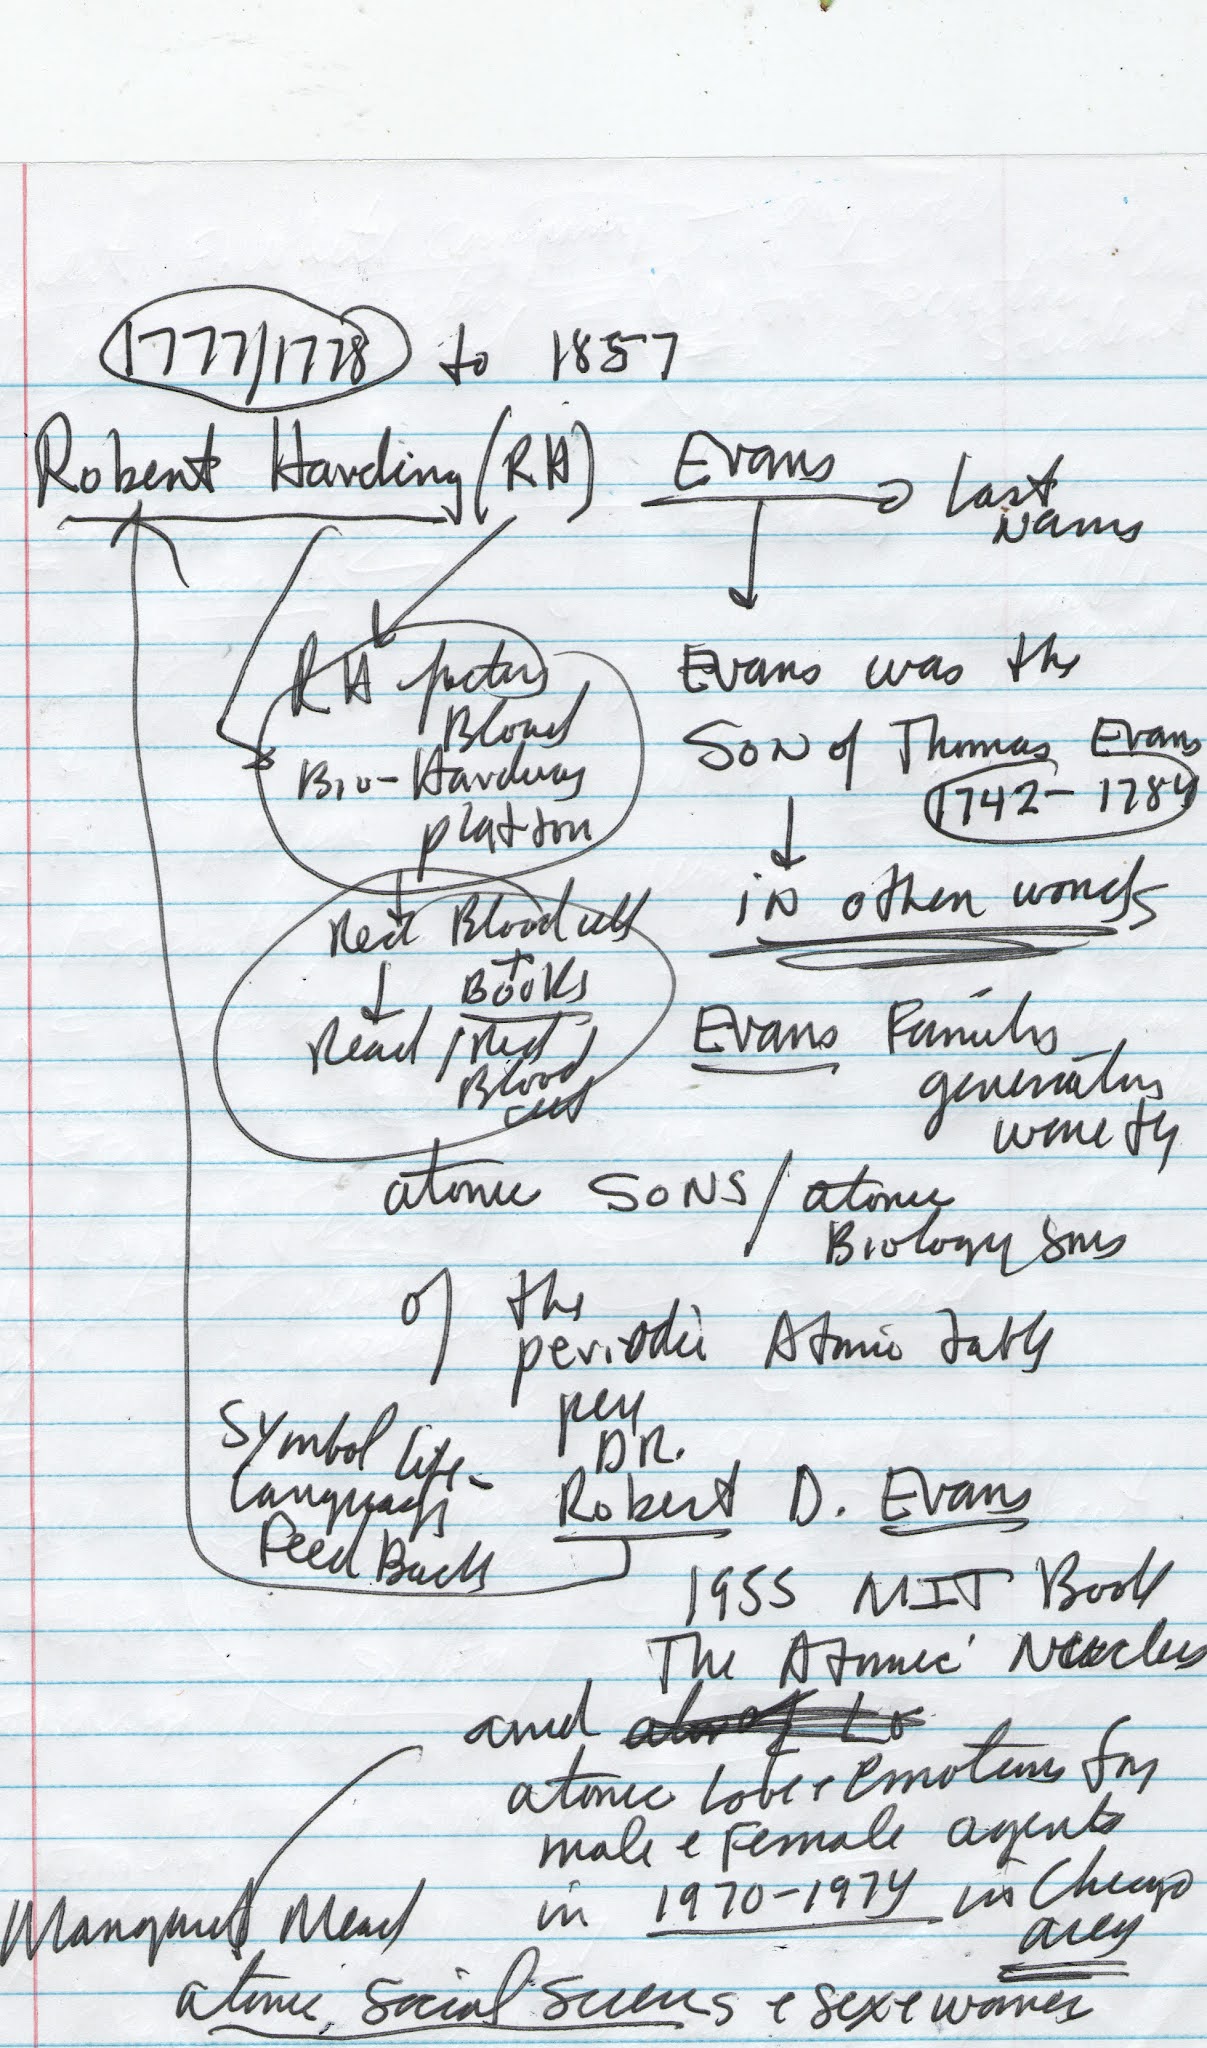 1777/1778 to 1857
Robert Harding (RH) Evans
Last
Name
RH factors
Blood
Bio-Hardway
platton
Evans was the
Son of Thomas Evans
1742 - 1784
in other words
Red Blood cells
+
Books
Read / Red
Blood
cell
Evans Family
generation
were the
atomic SONS / atomic
Biology Sons
of the
periodic Atomic table
per
DR.
Robert D. Evans
Symbol Life-
Language
Feed Back
1955 MIT Book
The Atomic Nucleus
and
atomic Love & Emotions for
male & Female agents
in 1970-1974 in Chicago
area
Margaret Mead
atomic Social Sciences & sex e waves